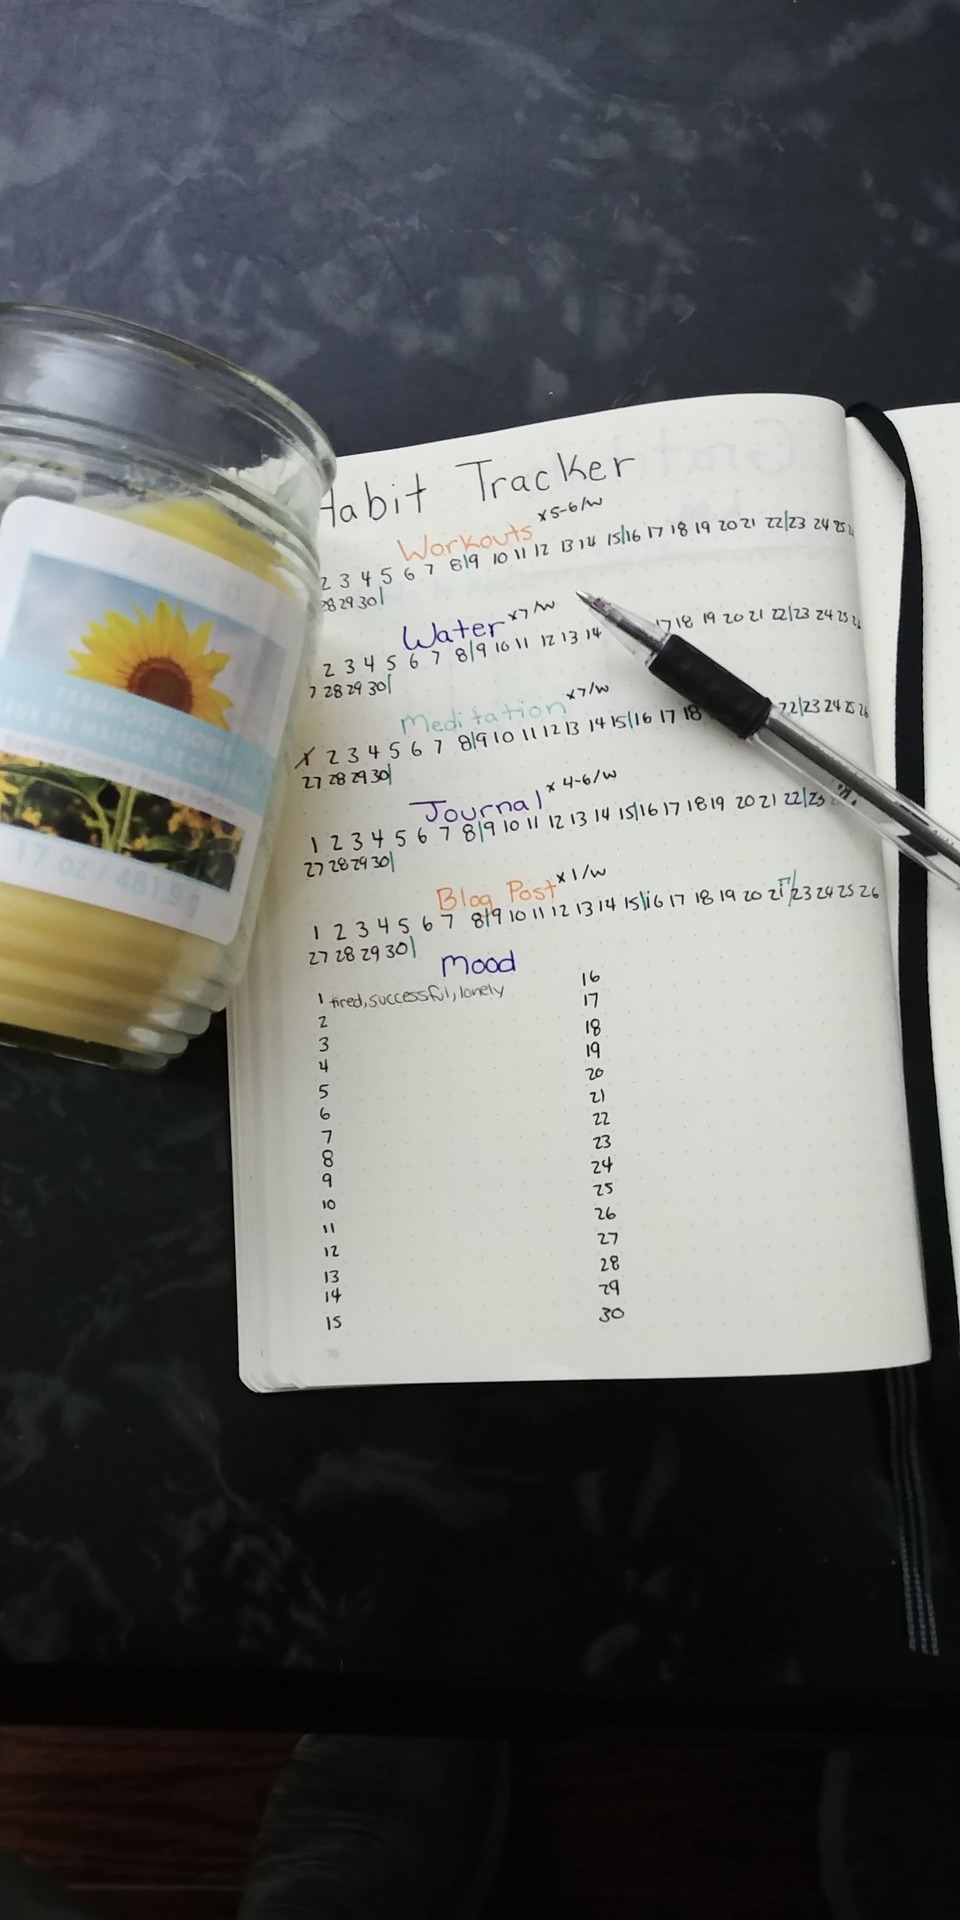 Habit Tracker
Workouts x5-6/w
2 3 4 5 6 7 8|9 10 11 12 13 14 15|16 17 18 19 20 21 22|23 24 25
28 29 30|
Water x7/w
2 3 4 5 6 7 8|9 10 11 12 13 14 17 18 19 20 21 22|23 24 25 26
7 28 29 30|
Meditation x7/w
X 2 3 4 5 6 7 8|9 10 11 12 13 14 15|16 17 18 22|23 24 25 26
27 28 29 30|
Journal x 4-6/w
1 2 3 4 5 6 7 8|9 10 11 12 13 14 15|16 17 18 19 20 21 22|23
27 28 29 30|
Blog Post x1/w
1 2 3 4 5 6 7 8|9 10 11 12 13 14 15|16 17 18 19 20 21 23 24 25 26
27 28 29 30|
Mood
1 tired, successful, lonely
2
3
4
5
6
7
8
9
10
11
12
13
14
15
16
17
18
19
20
21
22
23
24
25
26
27
28
29
30
70
17 oz / 481.9 g